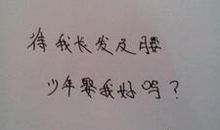 待我长发及腰
少年娶我好吗？